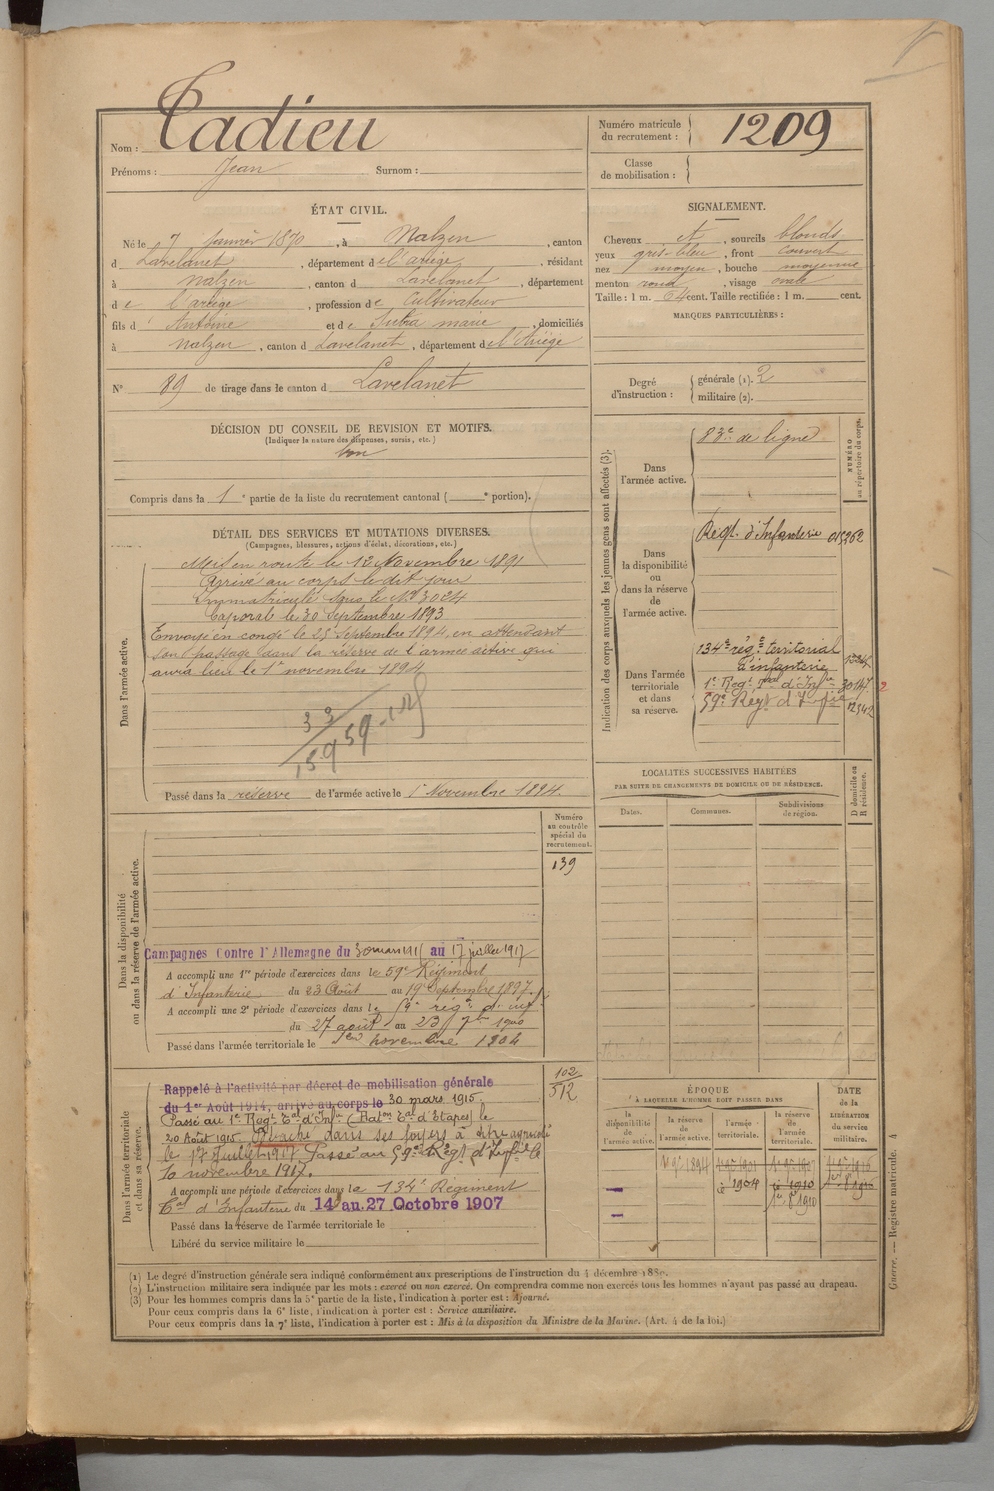 Nom : Tadieu
Prénoms : Jean Surnom :
Numéro matricule du recrutement : 1209
Classe de mobilisation :
ÉTAT CIVIL.
Né le 7 janvier 1870, à Nalzen, canton
d Lavelanet, département de l'ariège, résidant
à Nalzen, canton d Lavelanet, département
de l'ariège, profession de Cultivateur
fils d' Antoine et de Subra marie, domiciliés
à Nalzen, canton d Lavelanet, département de l'Ariège
N° 89 de tirage dans le canton d Lavelanet
SIGNALEMENT.
Cheveux et, sourcils blonds
yeux gris-bleu, front couvert
nez moyen, bouche moyenne
menton rond, visage ovale
Taille : 1 m. 64 cent. Taille rectifiée : 1 m. cent.
MARQUES PARTICULIÈRES :
Degré d'instruction : générale (1). 2
militaire (2).
DÉCISION DU CONSEIL DE REVISION ET MOTIFS.
(Indiquer la nature des dispenses, sursis, etc.)
bon
Compris dans la 1e partie de la liste du recrutement cantonal ( e portion).
DÉTAIL DES SERVICES ET MUTATIONS DIVERSES.
(Campagnes, blessures, actions d'éclat, décorations, etc.)
Dans l'armée active.
Mis en route le 12 Novembre 1891
Arrivé au corps le dit jour
Immatriculé sous le N° 3024
Caporal le 30 Septembre 1893
Envoyé en congé le 25 Septembre 1894 en attendant
son passage dans la réserve de l'armée active qui
aura lieu le 1er novembre 1894
33
Passé dans la réserve de l'armée active le 1er Novembre 1894.
Indication des corps auxquels les jeunes gens sont affectés (3).
NUMÉRO au répertoire du corps.
Dans l'armée active.
83e de ligne
Dans la disponibilité ou dans la réserve de l'armée active.
Régt. d'Infanterie 015262
Dans l'armée territoriale et dans sa réserve.
134e rég. territorial
d'infanterie
1er Regt Tal d'Infie 30147 2
59e Régt d'Infie 12342
LOCALITÉS SUCCESSIVES HABITÉES
PAR SUITE DE CHANGEMENTS DE DOMICILE OU DE RÉSIDENCE.
D domicile ou R résidence.
Dates. Communes. Subdivisions de région.
Numéro au contrôle spécial du recrutement.
139
Dans la disponibilité ou dans la réserve de l'armée active.
Campagnes Contre l'Allemagne du 30 mars 1915 au 17 juillet 1917
A accompli une 1re période d'exercices dans le 59e Régiment
d'Infanterie du 23 Août au 19 Septembre 1897.
A accompli une 2e période d'exercices dans le 59e rég. d'inf
du 27 août au 23 7bre 1900
Passé dans l'armée territoriale le 1er novembre 1904
102
512
Dans l'armée territoriale et dans sa réserve.
Rappelé à l'activité par décret de mobilisation générale
du 1er Août 1914, arrivé au corps le 30 mars 1915.
Passé au 1er Regt Tal d'Infie (Baton Tal d'Etapes) le
20 Août 1915. Détaché dans ses foyers à titre agricole
le 17 Juillet 1917 Passé au 59e Régt d'Infie le
10 novembre 1917.
A accompli une période d'exercices dans le 134e Régiment
Tal d'Infanterie du 14 au 27 Octobre 1907
Passé dans la réserve de l'armée territoriale le
Libéré du service militaire le
ÉPOQUE
À LAQUELLE L'HOMME DOIT PASSER DANS
la disponibilité de l'armée active.
la réserve de l'armée active.
l'armée territoriale.
la réserve de l'armée territoriale.
DATE de la LIBÉRATION du service militaire.
1 9bre 1894
1904
1910
(1) Le degré d'instruction générale sera indiqué conformément aux prescriptions de l'instruction du 4 décembre 1889.
(2) L'instruction militaire sera indiquée par les mots : exercé ou non exercé. On comprendra comme non exercés tous les hommes n'ayant pas passé au drapeau.
(3) Pour les hommes compris dans la 5e partie de la liste, l'indication à porter est : Ajourné.
Pour ceux compris dans la 6e liste, l'indication à porter est : Service auxiliaire.
Pour ceux compris dans la 7e liste, l'indication à porter est : Mis à la disposition du Ministre de la Marine. (Art. 4 de la loi.)
Guerre. — Registre matricule. 4